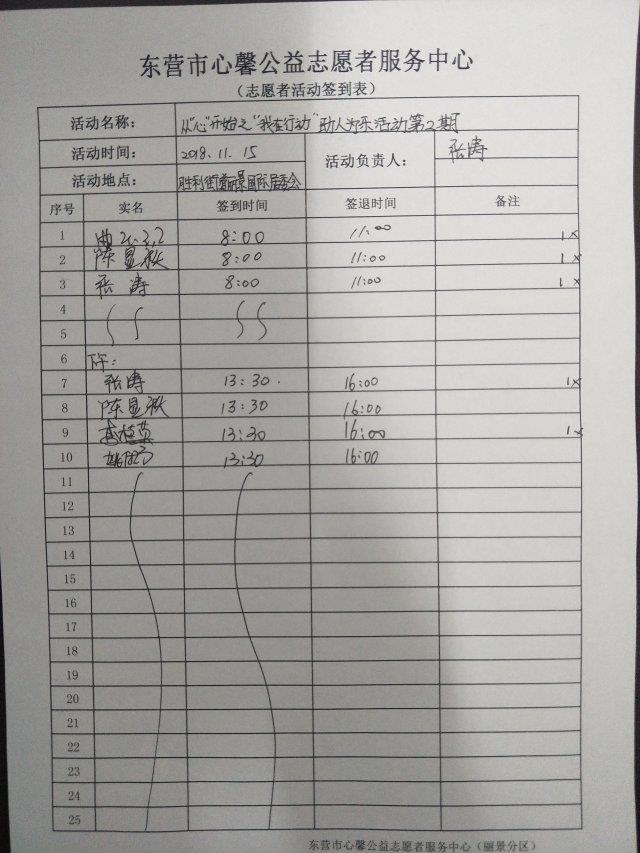 东营市心馨公益志愿者服务中心
（志愿者活动签到表）
活动名称： 从“心”开始之“我在行动”助人为乐活动第2期
活动时间： 2018.11.15 活动负责人： 张涛
活动地点： 胜利街道丽景国际居委会
序号 实名 签到时间 签退时间 备注
1 8:00 11:00 1x
2 陈显秋 8:00 11:00 1x
3 张涛 8:00 11:00 1x
4
5
6 下午：
7 张涛 13:30 16:00 1x
8 陈显秋 13:30 16:00
9 13:30 16:00 1x
10 13:30 16:00
11
12
13
14
15
16
17
18
19
20
21
22
23
24
25
东营市心馨公益志愿者服务中心（丽景分区）